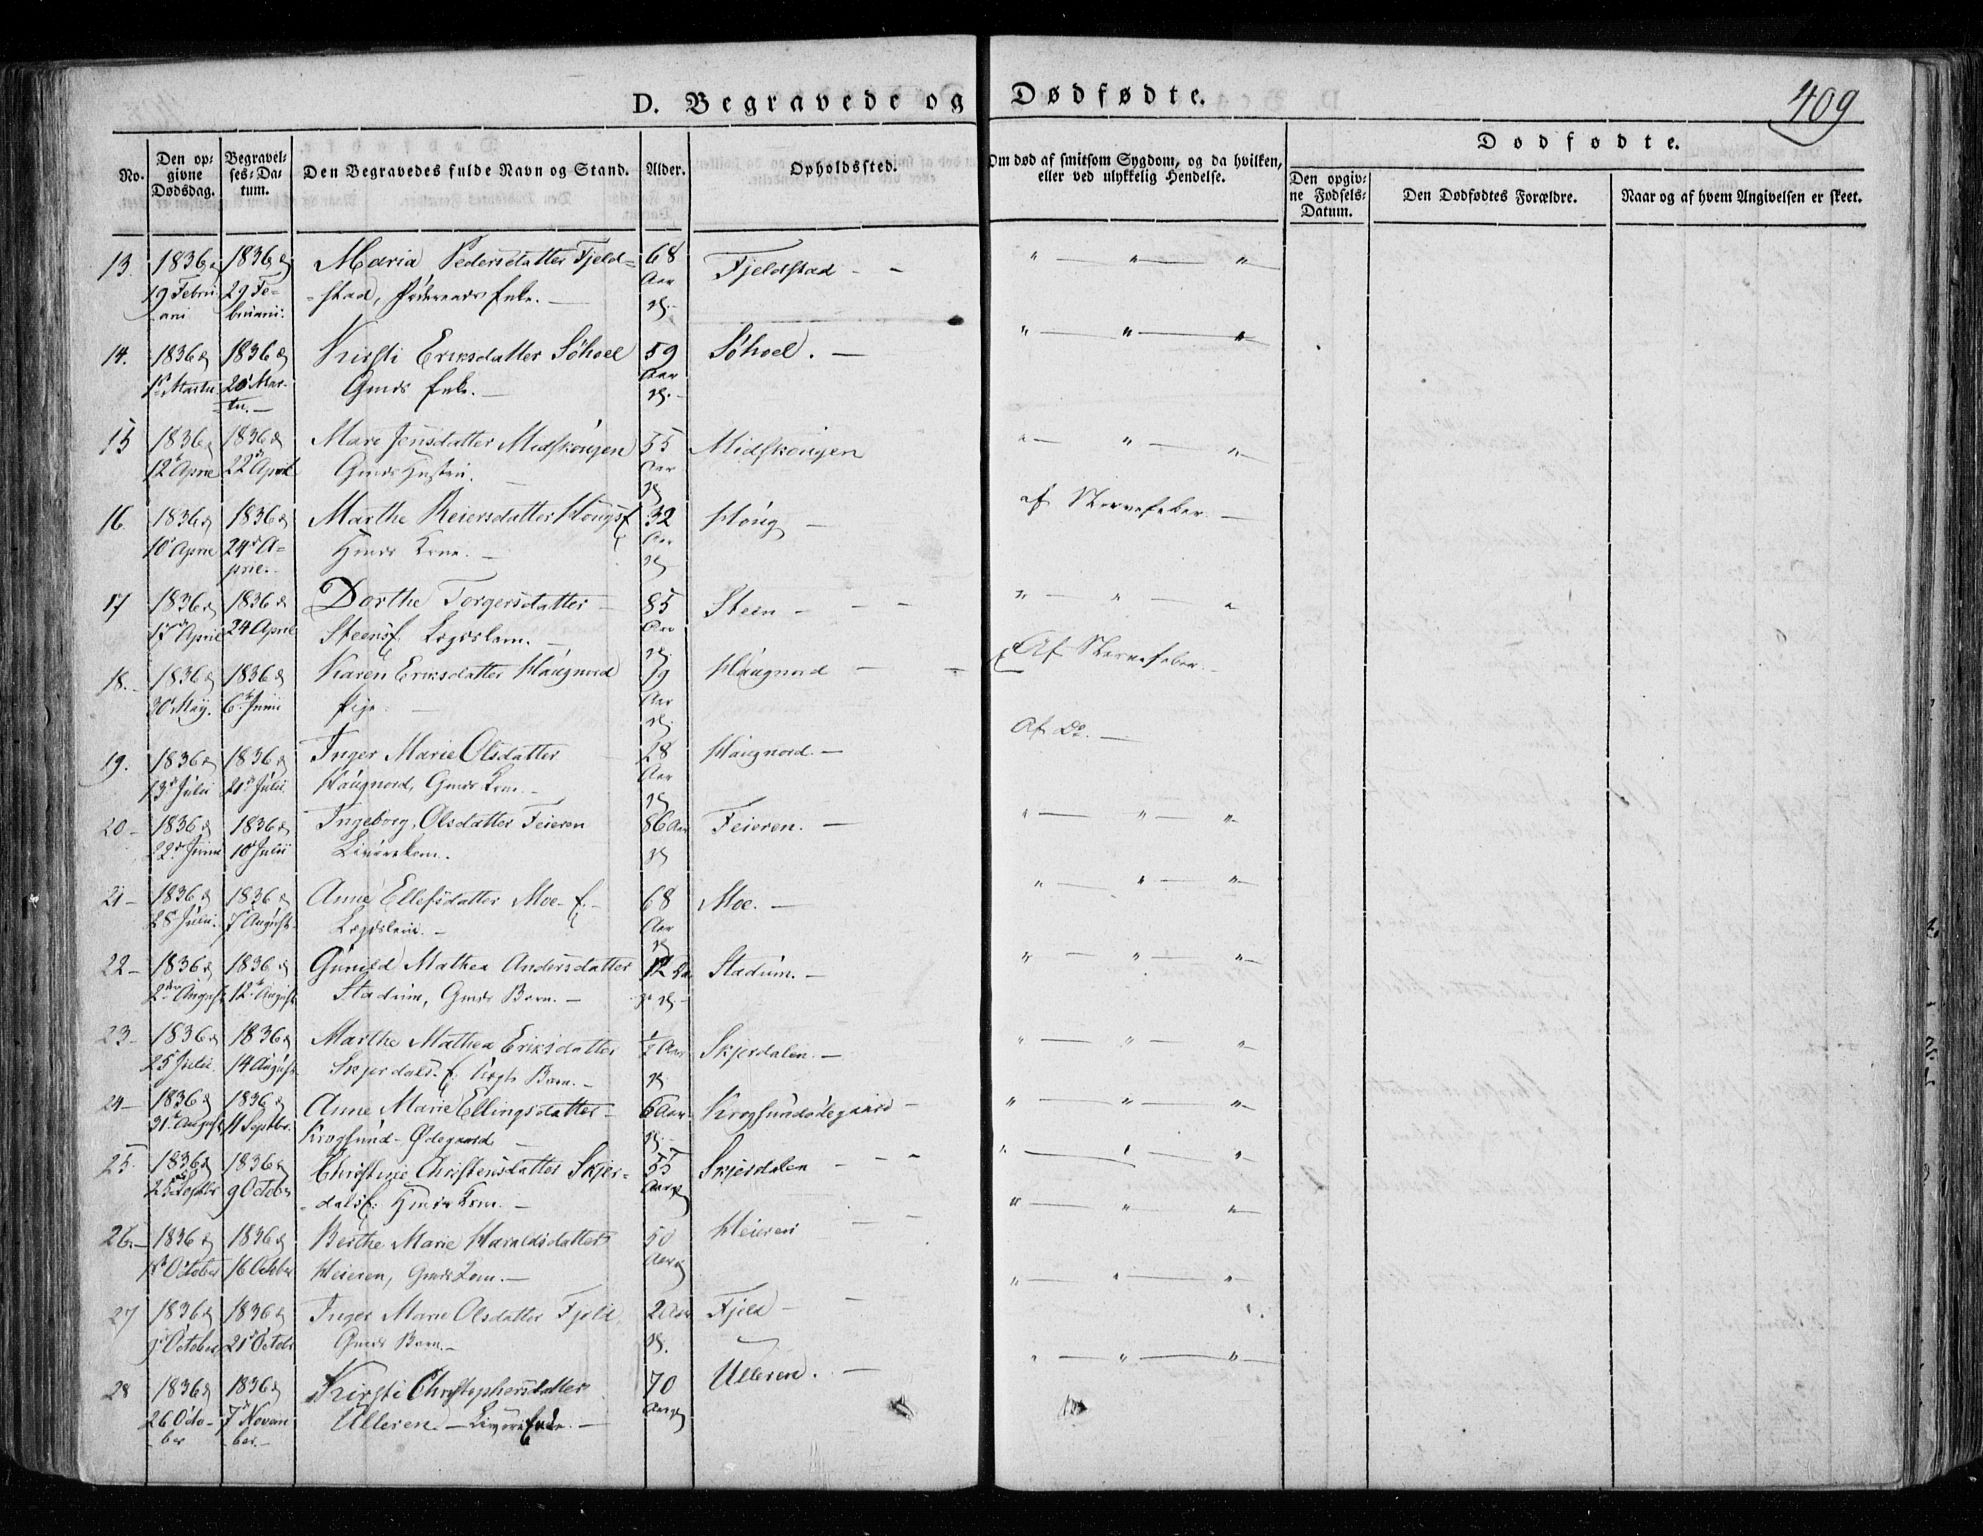 409
D. Begravede og Dødfødte.
No.
Den opgivne Dødsdag.
Begravelses-Datum.
Den Begravedes fulde Navn og Stand.
Alder.
Opholdssted.
Om død af smitsom Sygdom, og da hvilken, eller ved ulykkelig Hendelse.
Dødfødte.
Den opgivne Fødsels-Datum.
Den Dødfødtes Forældre.
Naar og af hvem Angivelsen er skeet.
13. 1836 d 1836 d Maria Pedersdatter Fjeld- 68 Fjeldstad - - " " "
19 Februari 29 Februari. -stad, Enke. Aar
14. 1836 d 1836 d Kirsti Eriksdatter Söhoel 59 Söhoel. " " "
1 Martii 20 Martii. Gmds Enke. Aar
15 1836 d 1836 d Mari Jensdatter Midskougen 55 Midskougen " " "
12 April 22 April Gmds Hustru. Aar
16. 1836 d 1836 d Marthe Reiersdatter Hougsf 32 Houg af Nervefeber.
10 April 24 April. Hmds Kone. Aar
17 1836 d 1836 d Dorthe Torgersdatter 85 Steen - " " "
17 April 24 April Steensf. Lægdslem. Aar
18. 1836 d 1836 d Karen Eriksdatter Haugnord 19 Haugnord Af Nervefeber.
30 May. 6 Junii Pige Aar
19. 1836 d 1836 d Inger Marie Olsdatter 28 Haugnord. Af Do.
13 Julii 21 Julii Haugnord, Gmds Kone. Aar
20 - 1836 d 1836 d Ingeborg Olsdatter Feieren 86 Aar Feieren. " " "
22 Junii 10 Julii
21 - 1836 d 1836 d Anne Ellefsdatter Moe f. 68 Moe. " " "
28 Junii. 7 August. Lægdslem. Aar
22 - 1836 d 1836 d Gunild Mathea Andersdatter 12 Stadum. " " "
2 August 12 August Stadum, Gmds Barn.
23 - 1836 d 1836 d Marthe Mathea Eriksdatter ½ Aar Skjerdalen. " " "
25 Julii. 14 August Skjerdals f. Barn.
24 - 1836 d 1836 d Anne Marie Ellingsdatter 6 Aar Krogsundødegaard " " "
31 August 11 Septbr. Krogsund-Ødegaard
25. 1836 d 1836 d Christine Christensdatter Skjer- 55 Skjerdalen " " "
25 Septbr 9 October -dalsf. Hmds Kone. Aar
26. 1836 d 1836 d Berthe Marie Haraldsdatter 50 Heieren " " "
October 16 October Heieren, Gmds Kone. Aar
27 1836 d 1836 d Inger Marie Olsdatter Fjeld 2 Aar Fjeld " " "
October 21 Octobr Gmds Barn.
28 1836 d 1836 d Kirsti Christophersdatter 70 Ulleren. " " "
26 October 7 November. Ulleren. Enke. Aar